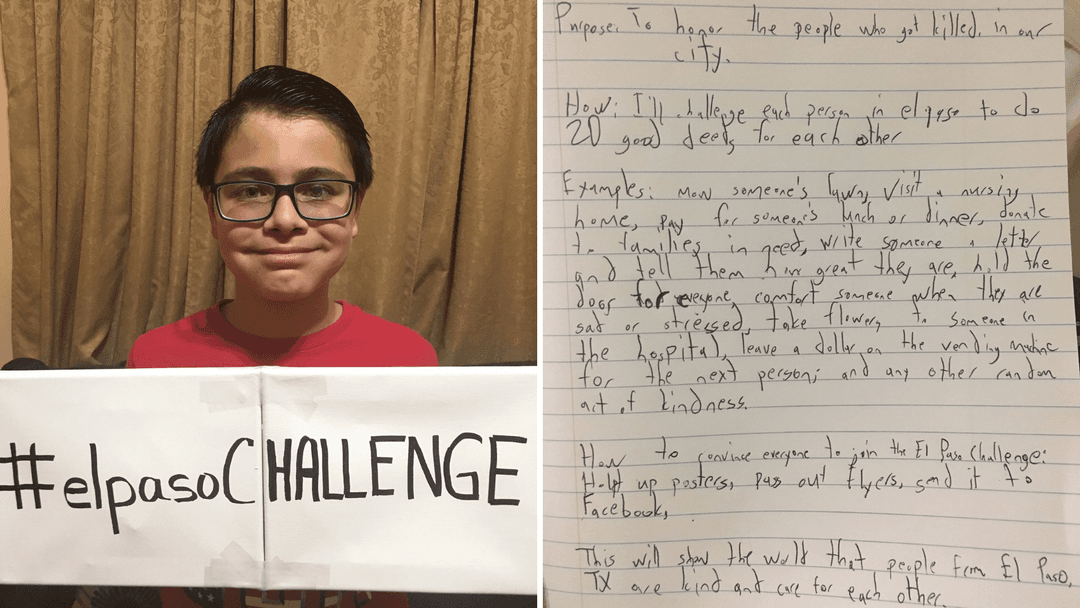 #elpasoCHALLENGE
Purpose: To honor the people who got killed in our
city.
How: I'll challenge each person in el paso to do
20 good deeds for each other
Examples: mow someone's lawn, visit a nursing
home, pay for someone's lunch or dinner, donate
to families in need, write someone a letter
and tell them how great they are, hold the
door for everyone, comfort someone when they are
sad or stressed, take flowers to someone in
the hospital, leave a dollar on the vending machine
for the next person, and any other random
act of kindness.
How to convince everyone to join the El Paso Challenge:
up posters, pass out flyers, send it to
Facebook,
This will show the world that people from El Paso,
TX are kind and care for each other.